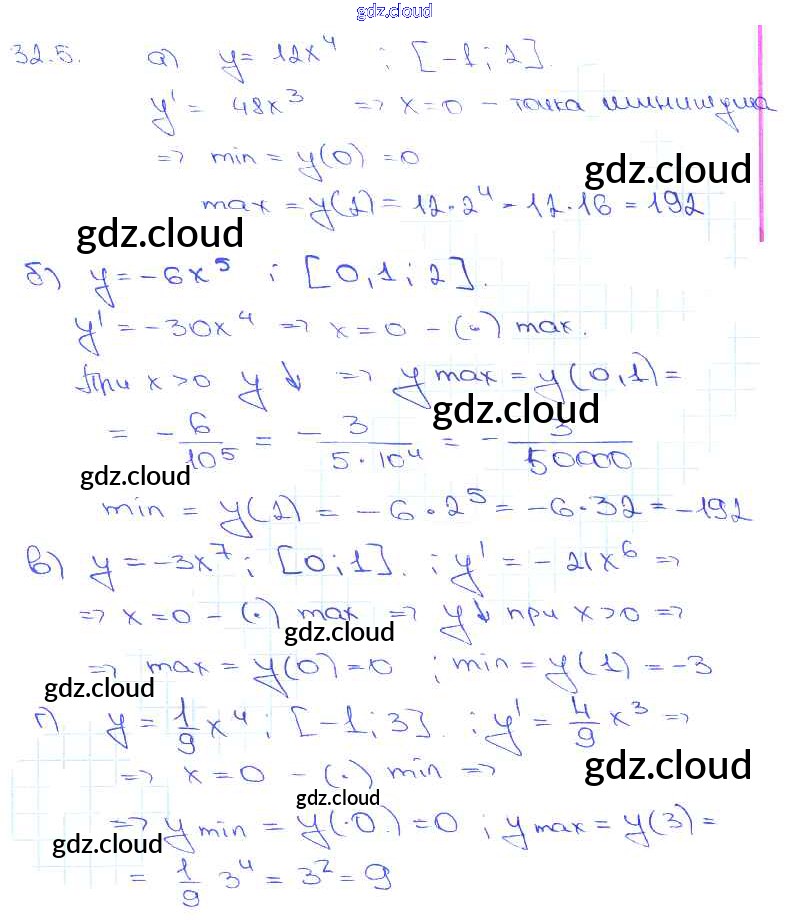 gdz.cloud
32.5. а) y = 12x⁴ ; [-1; 2].
y' = 48x³ => x=0 - точка минимума
=> min = y(0) = 0
gdz.cloud
max = y(2) = 12·2⁴ = 12·16 = 192
gdz.cloud
б) y = -6x⁵ ; [0,1; 2].
y' = -30x⁴ => x = 0 - (·) max.
При x>0 y ↓ => y max = y(0,1) =
gdz.cloud
= - 6/10⁵ = - 3/(5·10⁴) = - 3/50000
gdz.cloud
min = y(2) = -6·2⁵ = -6·32 = -192
в) y = -3x⁷ ; [0; 1]. ; y' = -21x⁶ =>
=> x=0 - (·) max => y↓ при x>0 =>
gdz.cloud
=> max = y(0) = 0 ; min = y(1) = -3
gdz.cloud
г) y = 1/9 x⁴ ; [-1; 3]. ; y' = 4/9 x³ =>
=> x=0 - (·) min =>
gdz.cloud
gdz.cloud
=> y min = y(0) = 0 ; y max = y(3) =
gdz.cloud
= 1/9 3⁴ = 3² = 9